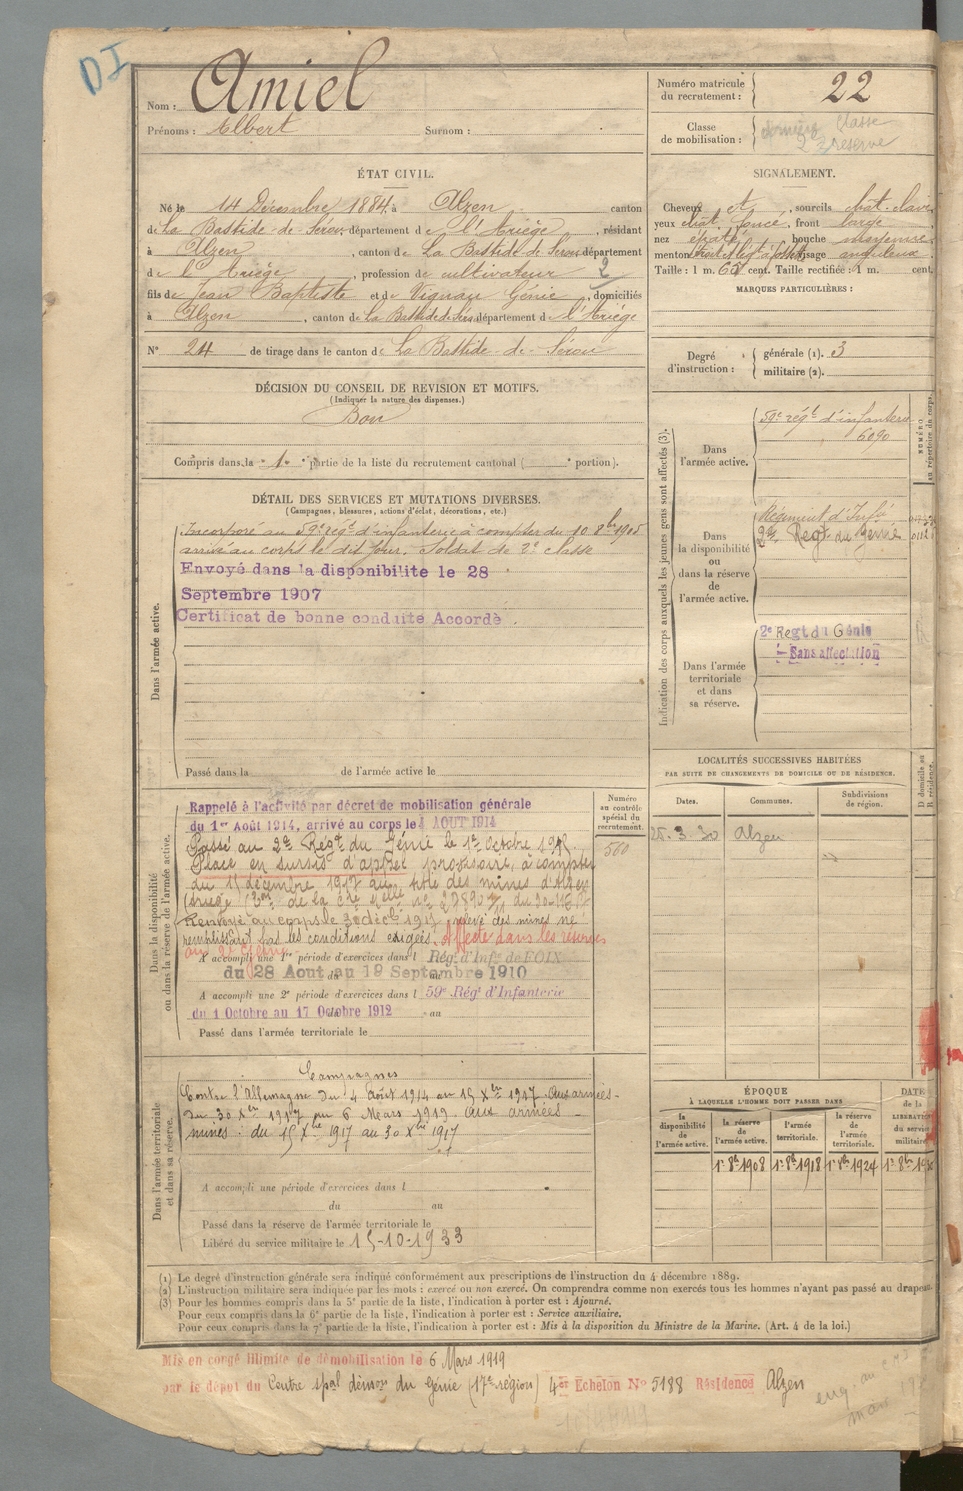 DI
Nom : Amiel
Prénoms : Albert Surnom :
Numéro matricule du recrutement : 22
Classe de mobilisation : dernière classe
2e réserve
ÉTAT CIVIL.
Né le 14 Décembre 1884, à Alzen canton
de La Bastide-de-Sérou, département de l'Ariège, résidant
à Alzen, canton de La Bastide de Sérou, département
de l'Ariège, profession de cultivateur 2
fils de Jean Baptiste et de Vignau Génie, domiciliés
à Alzen, canton de La Bastide de Sérou, département de l'Ariége
N° 24 de tirage dans le canton de La Bastide-de-Sérou
SIGNALEMENT.
Cheveux et, sourcils chât. clairs
yeux chât. foncé, front large
nez épaté, bouche moyenne
menton visage anguleux
Taille : 1 m. 65 cent. Taille rectifiée : 1 m. cent.
MARQUES PARTICULIÈRES :
Degré d'instruction : générale (1). 3
militaire (2).
DÉCISION DU CONSEIL DE REVISION ET MOTIFS.
(Indiquer la nature des dispenses.)
Bon
Compris dans la 1e partie de la liste du recrutement cantonal ( e portion).
DÉTAIL DES SERVICES ET MUTATIONS DIVERSES.
(Campagnes, blessures, actions d'éclat, décorations, etc.)
Dans l'armée active.
Incorporé au 59e régt d'infanterie à compter du 10 8bre 1905
arrivé au corps le dit jour. Soldat de 2e classe
Envoyé dans la disponibilite le 28
Septembre 1907
Certificat de bonne conduite Accordé
Passé dans la de l'armée active le
Indication des corps auxquels les jeunes gens sont affectés (3).
Dans l'armée active.
59e régt d'infanterie
6090
NUMÉRO au répertoire du corps.
Dans la disponibilité ou dans la réserve de l'armée active.
Régiment d'Infie
2e Regt du Génie
Dans l'armée territoriale et dans sa réserve.
2e Regt du Génie
Sans affectation
LOCALITÉS SUCCESSIVES HABITÉES
PAR SUITE DE CHANGEMENTS DE DOMICILE OU DE RÉSIDENCE.
Dates. Communes. Subdivisions de région. D domicile ou R résidence.
25-3-30 Alzen
Dans la disponibilité ou dans la réserve de l'armée active.
Numéro au contrôle spécial du recrutement.
560
Rappelé à l'activité par décret de mobilisation générale
du 1er Août 1914, arrivé au corps le 4 AOUT 1914
Passé au 2e Régt du Génie le 1er Octobre 1915.
Placé en sursis d'appel provisoire, à compter
du 15 décembre 1917 au titre des mines d'Alzen
(Ariège)
Renvoyé au corps le 30 déc. 1917, relevé des mines ne
remplissant pas les conditions exigées. Affecté dans les réserves
au 2e Génie
A accompli une 1re période d'exercices dans l Régt d'Infie de FOIX
du 28 Aout au 19 Septembre 1910
A accompli une 2e période d'exercices dans l 59e Régt d'Infanterie
du 1 Octobre au 17 Octobre 1912
Passé dans l'armée territoriale le
Dans l'armée territoriale et dans sa réserve.
Campagnes
Contre l'Allemagne du 4 août 1914 au 15 Xbre 1917 Aux armées -
du 30 Xbre 1917 au 6 Mars 1919. aux armées -
mines : du 15 Xbre 1917 au 30 Xbre 1917
A accompli une période d'exercices dans l
du au
Passé dans la réserve de l'armée territoriale le
Libéré du service militaire le 15-10-1933
ÉPOQUE
À LAQUELLE L'HOMME DOIT PASSER DANS
la disponibilité de l'armée active. la réserve de l'armée active. l'armée territoriale. la réserve de l'armée territoriale. DATE de la LIBÉRATION du service militaire
1r 8bre 1908 1r 8bre 1918 1r 8bre 1924 1r 8bre
(1) Le degré d'instruction générale sera indiqué conformément aux prescriptions de l'instruction du 4 décembre 1889.
(2) L'instruction militaire sera indiquée par les mots : exercé ou non exercé. On comprendra comme non exercés tous les hommes n'ayant pas passé au drapeau.
(3) Pour les hommes compris dans la 5e partie de la liste, l'indication à porter est : Ajourné.
Pour ceux compris dans la 6e partie de la liste, l'indication à porter est : Service auxiliaire.
Pour ceux compris dans la 7e partie de la liste, l'indication à porter est : Mis à la disposition du Ministre de la Marine. (Art. 4 de la loi.)
Mis en congé illimité de démobilisation le 6 Mars 1919
par le dépôt du Centre spal démon du Génie (17e région) 4e Echelon N° 5188 Résidence Alzen